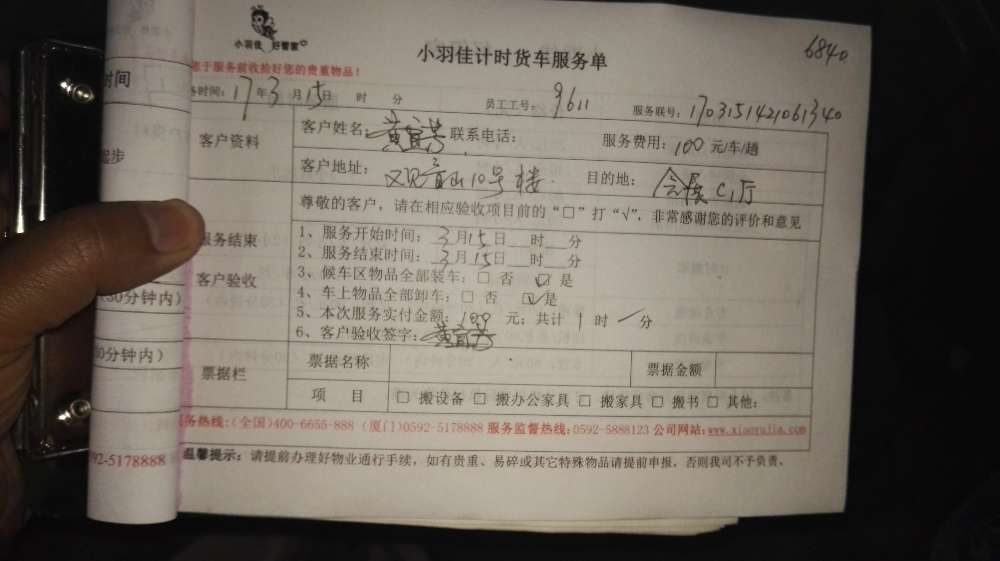 小羽佳 好管家
小羽佳计时货车服务单
6840
您于服务前收拾好您的贵重物品!
务时间: 17年3月15日 时 分 员工工号: 9611 服务联号: 1703151421061340
客户资料
客户姓名: 联系电话: 服务费用: 100 元/车/趟
客户地址: 观音山10号楼 目的地: 会展C1厅
尊敬的客户,请在相应验收项目前的“□”打“√”,非常感谢您的评价和意见
服务结束
客户验收
1、服务开始时间: 3月15日 时 分
2、服务结束时间: 3月15日 时 分
3、候车区物品全部装车: □ 否 ☑ 是
4、车上物品全部卸车: □ 否 ☑ 是
5、本次服务实付金额: 100 元; 共计 1 时 / 分
6、客户验收签字:
票据栏
票据名称 票据金额
项 目 □ 搬设备 □ 搬办公家具 □ 搬家具 □ 搬书 □ 其他:
务热线:(全国)400-6655-888 (厦门)0592-5178888 服务监督热线:0592-5888123 公司网站:www.xiaoyujia.com
温馨提示: 请提前办理好物业通行手续,如有贵重、易碎或其它特殊物品请提前申报,否则我司不予负责。
时间
起步
(30分钟内)
0分钟内)
92-5178888